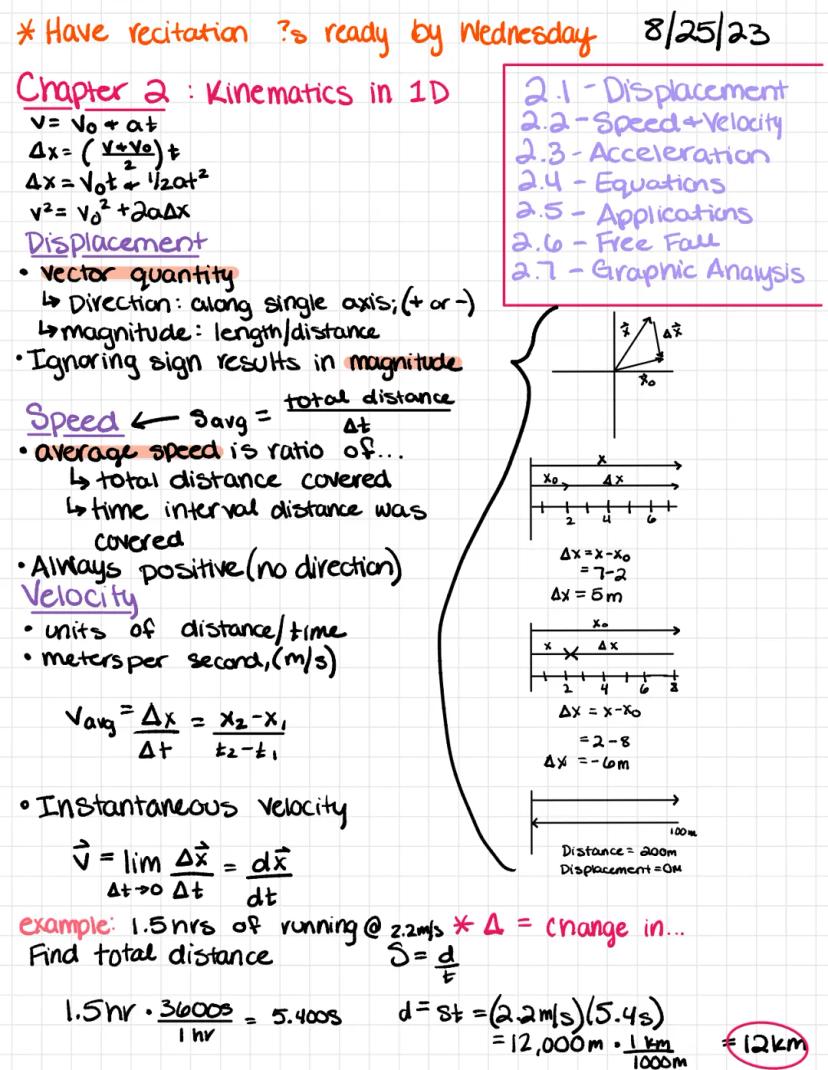 * Have recitation ?s ready by Wednesday 8/25/23
Chapter 2 : Kinematics in 1D
V = V₀ + at
Δx = ( V+V₀ / 2 ) t
Δx = V₀t + 1/2at²
v² = v₀² + 2aΔx
2.1 - Displacement
2.2 - Speed + Velocity
2.3 - Acceleration
2.4 - Equations
2.5 - Applications
2.6 - Free Fall
2.7 - Graphic Analysis
Displacement
• vector quantity
↳ Direction: along single axis; (+ or -)
↳ magnitude: length/distance
• Ignoring sign results in magnitude
Speed ← Savg = total distance / Δt
• average speed is ratio of...
↳ total distance covered
↳ time interval distance was
covered
• Always positive (no direction)
Velocity
• units of distance/time
• meters per second, (m/s)
Vavg = Δx / Δt = x₂-x₁ / t₂-t₁
• Instantaneous velocity
v⃗ = lim Δt→0 Δx⃗ / Δt = dx⃗ / dt
x⃗ Δx⃗
x⃗₀
x
x₀ Δx
2 4 6
Δx = x-x₀
= 7-2
Δx = 5m
x₀
x Δx
2 4 6 8
Δx = x-x₀
= 2-8
Δx = -6m
100m
Distance = 200m
Displacement = 0M
example: 1.5 hrs of running @ 2.2m/s * Δ = change in...
Find total distance S = d / t
1.5hr · 3600s / 1 hr = 5.400s d = st = (2.2m/s)(5.4s)
= 12,000m · 1 km / 1000m = 12km